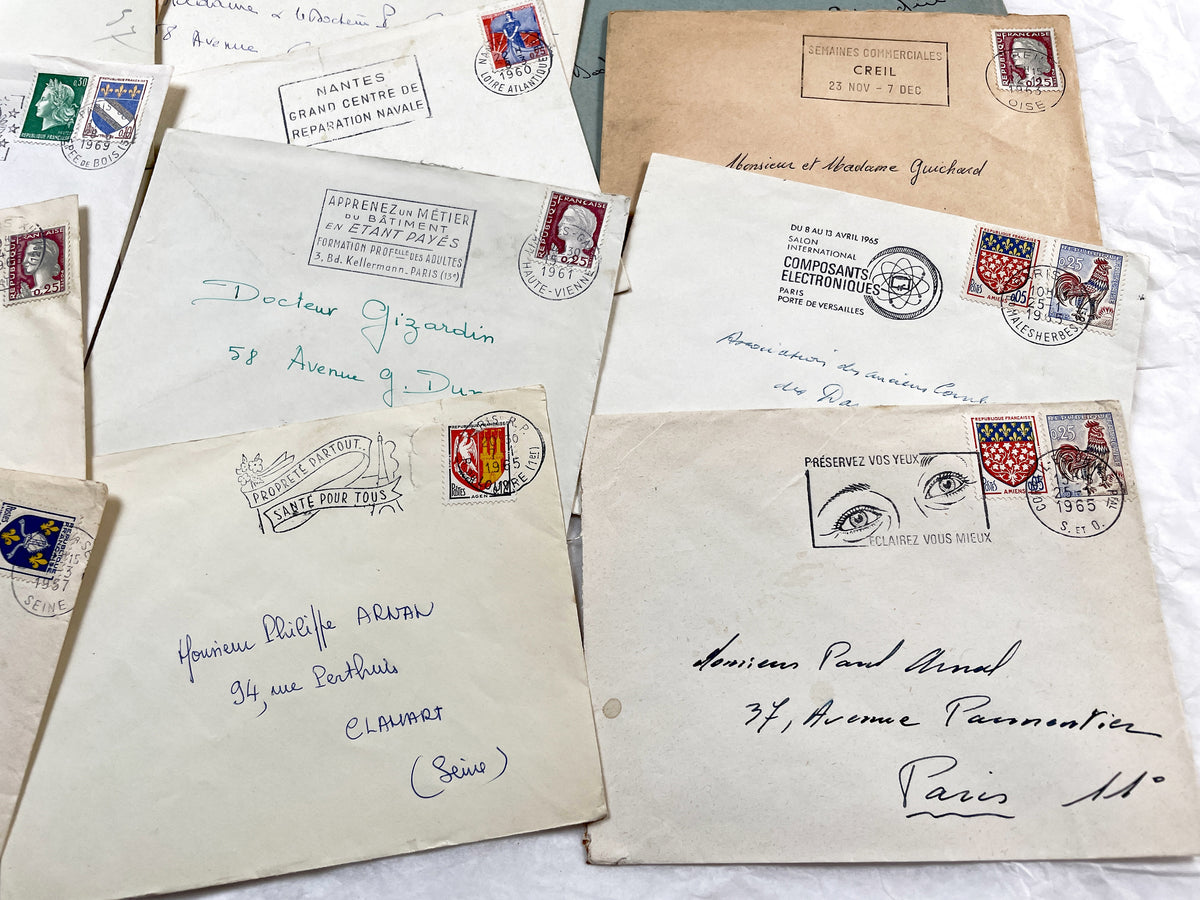 58 Avenue
NANTES
GRAND CENTRE DE
REPARATION NAVALE
1960
LOIRE ATLANTIQUE
0,30
1969
SEMAINES COMMERCIALES
CREIL
23 NOV - 7 DEC
REPUBLIQUE FRANCAISE
0,25
OISE
Monsieur et Madame Guichard
APPRENEZ UN MÉTIER
DU BÂTIMENT
EN ETANT PAYÉS
FORMATION PROFelle DES ADULTES
3, Bd. Kellermann - PARIS (13e)
REPUBLIQUE FRANCAISE
0.25
1961
HTE-VIENNE
Docteur Gizardin
58 Avenue G.
DU 8 AU 13 AVRIL 1965
SALON
INTERNATIONAL
COMPOSANTS
ELECTRONIQUES
PARIS
PORTE DE VERSAILLES
REPUBLIQUE FRANÇAISE
0,05
AMIENS
0,25
1965
MALESHERBES
Association des anciens
des
REPUBLIQUE FRANÇAISE
0.25
PROPRETÉ PARTOUT.
SANTÉ POUR TOUS
PARIS R.P.
1965
Postes
AGEN
Monsieur Philippe ARNAN
94, rue Perthuis
CLAMART
(Seine)
PRÉSERVEZ VOS YEUX
ECLAIREZ VOUS MIEUX
REPUBLIQUE FRANÇAISE
AMIENS
0,25
1965
S. ET O.
Monsieur Paul Arnal
37, Avenue Parmentier
Paris 11°
1957
SEINE